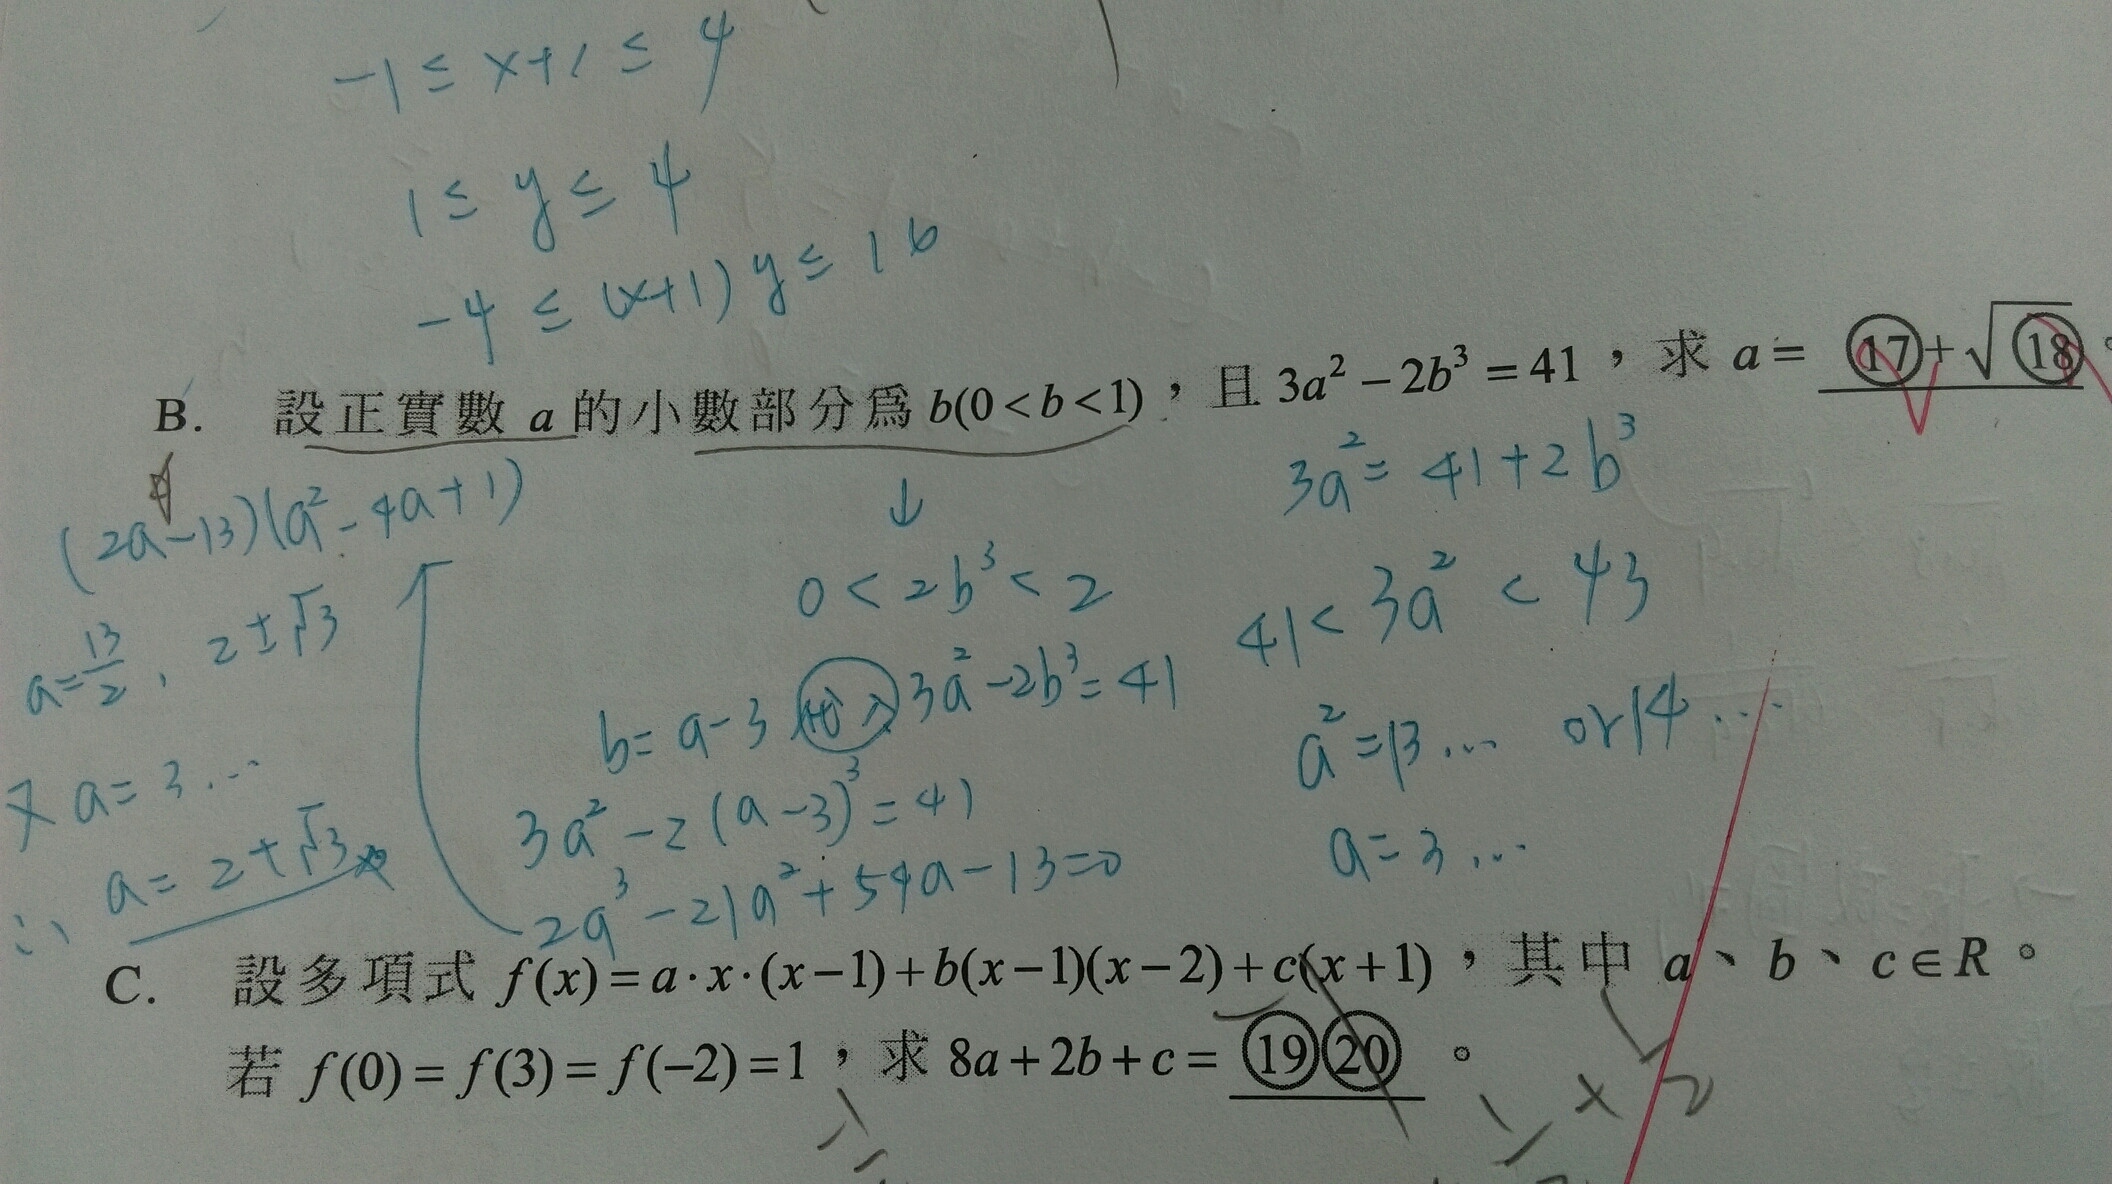 -1 ≤ x+1 ≤ 4
1 ≤ y ≤ 4
-4 ≤ (x+1) y ≤ 16
B. 設正實數 a 的小數部分爲 b(0<b<1)，且 3a² − 2b³ = 41，求 a = ⑰+√⑱。
(2a-13)(a²-4a+1)
a=13/2, 2±√3
又 a=3...
∴ a=2+√3
↓
0 < 2b³ < 2
b=a-3 代入 3a²-2b³=41
3a²-2(a-3)³=41
2a³-21a²+54a-13=0
3a²=41+2b³
41<3a²<43
a²=13... or 14...
a=3...
C. 設多項式 f(x)=a·x·(x−1)+b(x−1)(x−2)+c(x+1)，其中 a、b、c∈R。
若 f(0)=f(3)=f(−2)=1，求 8a+2b+c= ⑲⑳ 。